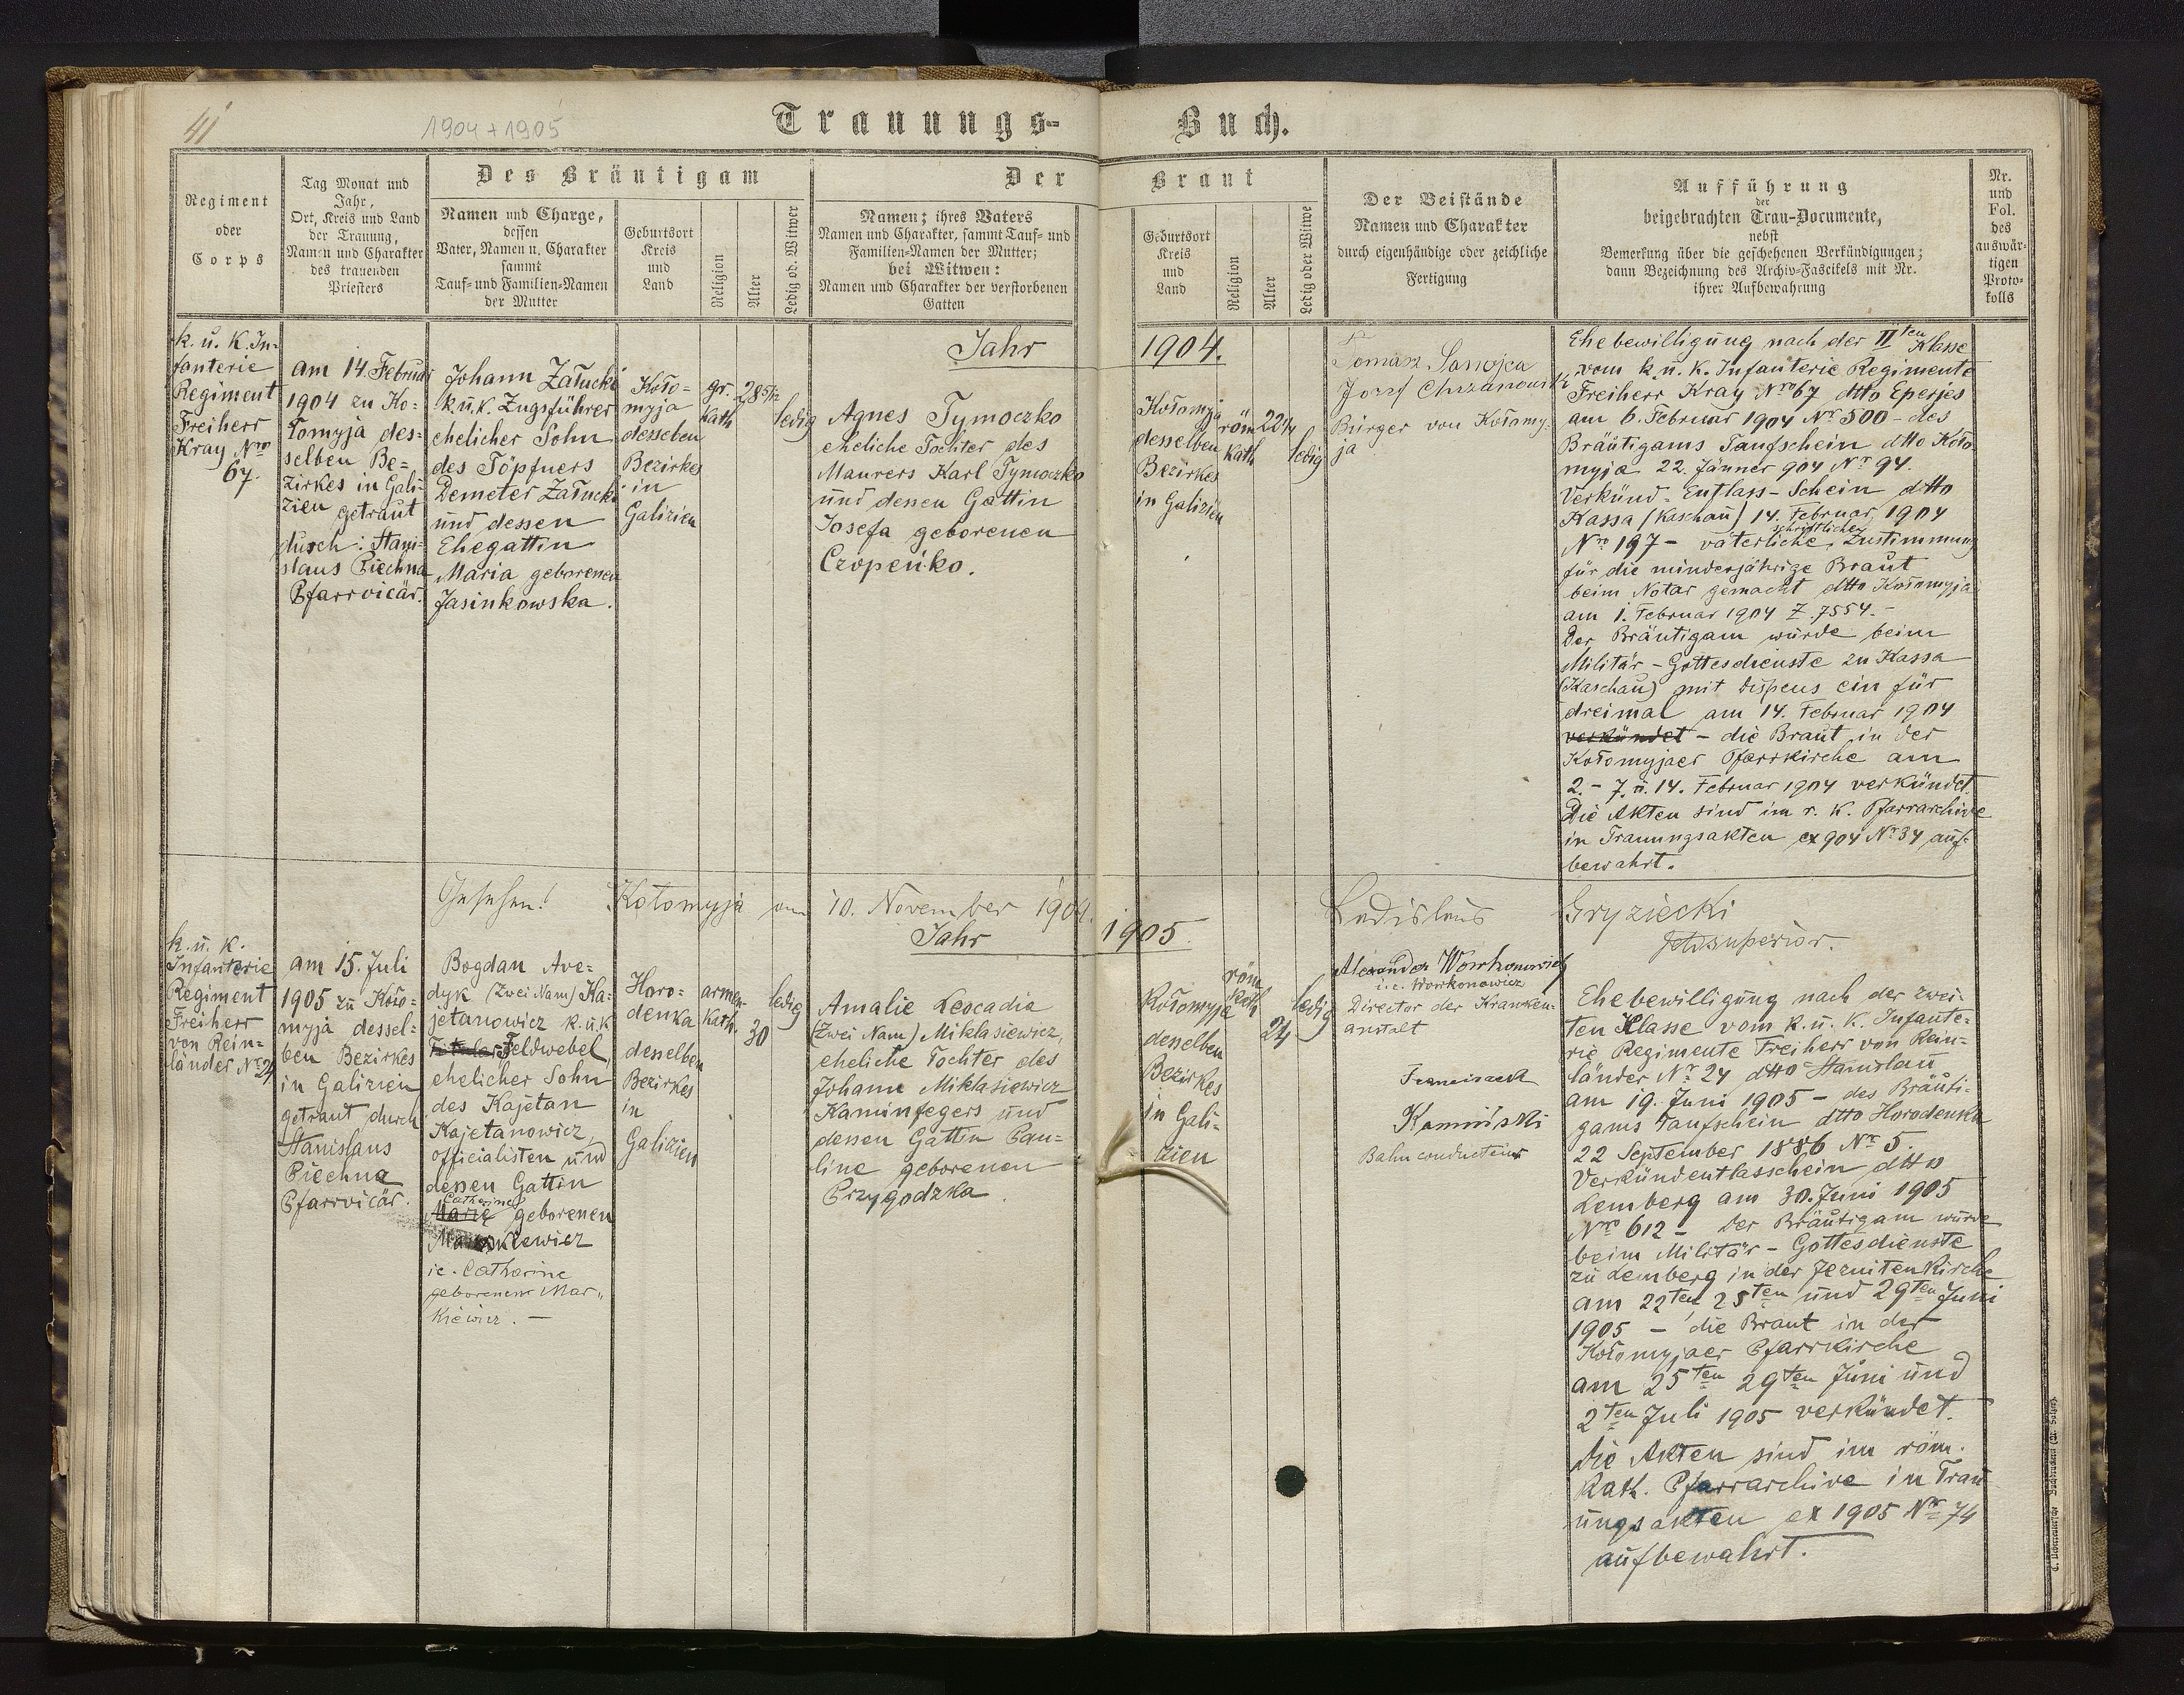 41
1904 + 1905
Trauungs-Buch.
Regiment
oder
Corps
Tag Monat und
Jahr,
Ort, Kreis und Land
der Trauung,
Namen und Charakter
des trauenden
Priesters
Des Bräutigam
Namen und Charge,
dessen
Vater, Namen u. Charakter
sammt
Tauf- und Familien-Namen
der Mutter
Geburtsort
Kreis
und
Land
Religion
Alter
Ledig od. Witwer
Der Braut
Namen; ihres Vaters
Namen und Charakter, sammt Tauf- und
Familien-Namen der Mutter;
bei Witwen:
Namen und Charakter der verstorbenen
Gatten
Geburtsort
Kreis
und
Land
Religion
Alter
Ledig oder Witwe
Der Beistände
Namen und Charakter
durch eigenhändige oder zeichliche
Fertigung
Aufführung
der
beigebrachten Trau-Documente,
nebst
Bemerkung über die geschehenen Verkündigungen;
dann Bezeichnung des Archiv-Fascikels mit Nr.
ihrer Aufbewahrung
Nr.
und
Fol.
des
auswär-
tigen
Proto-
kolls
Jahr 1904.
k. u. K. In-
fanterie
Regiment
Freiherr
Kray Nro
67.
am 14. Februar
1904 zu Ko-
łomyja des-
selben Be-
zirkes in Gali-
zien getraut
durch: Stani-
slaus Piechna
Pfarrvicär.
Johann Załucki
k. u. K. Zugsführer
ehelicher Sohn
des Töpfners
Demeter Załucki
und dessen
Ehegattin
Maria geborenen
Jasinkowska.
Koło-
myja
desselben
Bezirkes
in
Galizien
gr.
kath
28 5/12
ledig
Agnes Tymoczko
eheliche Tochter des
Maurers Karl Tymoczko
und dessen Gattin
Josefa geborenen
Czopeńko.
Kołomyja
desselben
Bezirkes
in Galizien
röm
kath
22 1/4
ledig
Tomasz Sanojca
Jozef Chrzanowski
Bürger von Kołomy-
ja
Ehebewilligung nach der IIten Klasse
vom k. u. K. Infanterie Regimente
Freiherr Kray Nro 67 dtto Eperjes
am 6. Februar 1904 Nr 500 - des
Bräutigams Taufschein dtto Koło
myja 22. Jänner 904 Nr 94.
Verkünd-Entlass-Schein dtto
Kassa (Kaschau) 14. Februar 1904
schriftliche
Nro 197 - väterliche Zustimmung
für die minderjährige Braut
beim Notar gemacht dtto Kołomyja
am 1. Februar 1904 Z. 7554. -
Der Bräutigam wurde beim
Militär-Gottesdienste zu Kassa
(Kaschau) mit Dispens ein für
dreimal am 14. Februar 1904
verkündet - die Braut in der
Kołomyjaer Pfarrkirche am
2. - 7. u. 14. Februar 1904 verkündet.
Die Akten sind im r. K. Pfarrarchive
in Trauungsakten ex 904 Nr 34 auf-
bewahrt.
Gesehen! Kołomyja am 10. November 1904. Ladislaus Gryziecki
Feldsuperior.
Jahr 1905
k. u. k.
Infanterie
Regiment
Freiherr
von Rein-
länder Nr 24
am 15. Juli
1905 zu Koło-
myja dessel-
ben Bezirkes
in Galizien
getraut durch
Stanislaus
Piechna
Pfarrvicär.
Bogdan Ave-
dyk (Zwei Nam) Ka-
jetanowicz k. u. k
Titular Feldwebel,
ehelicher Sohn
des Kajetan
Kajetanowicz,
officialisten und
dessen Gattin
Catharine
Marie geborenen
kiewicz
i.e. Catharine
geborenen Mar-
kiewicz. -
Horo-
denka
desselben
Bezirkes
in
Galizien
armen-
kath.
30
ledig
Amalie Leocadia
(Zwei Nam) Miklasiewicz,
eheliche Tochter des
Johann Miklasiewicz
Kaminfegers und
dessen Gattin Pau-
line geborenen
Przygodzka.
Kołomyja
desselben
Bezirkes
in Gali-
zien
röm
kath
24
ledig
Alexander Workonowicz
i.e. Workonowicz
Director der Kranken-
anstalt
Franciszek
Kamiński
Bahnconducteur
Ehebewilligung nach der zwei-
ten Klasse vom k. u. K. Infante-
rie Regimente Freiherr von Rein-
länder Nr 24 dtto Stanislau
am 19. Juni 1905 - des Bräuti-
gams Taufschein dtto Horodenka
22 September 1886 Nr 5.
Verkündentlasschein dtto
Lemberg am 30. Juni 1905
Nro 612 - der Bräutigam wurde
beim Militär-Gottesdienste
zu Lemberg in der Jezuitenkirche
am 22ten, 25ten und 29ten Juni
1905 - die Braut in der
Kołomyjaer Pfarrkirche
am 25ten 29ten Juni und
2ten Juli 1905 verkündet.
Die Akten sind im röm.
Kath. Pfarrarchive in Trau-
ungsakten ex 1905 Nr 74
aufbewahrt.